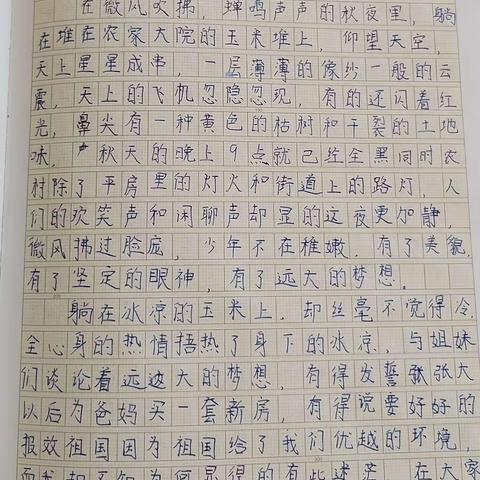 在微风吹拂，蝉鸣声声的秋夜里，躺
在堆在农家大院的玉米堆上，仰望天空，
天上星星成串，一层薄薄的像纱一般的云
震，天上的飞机忽隐忽现，有的还闪着红
光，鼻尖有一种黄色的枯树和干裂的土地
味，秋天的晚上9点就已经全黑同时农
村除了平房里的灯火和街道上的路灯，人
们的欢笑声和闲聊声却显的这夜更加静，
微风拂过脸庞，少年不在稚嫩，有了美貌，
有了坚定的眼神，有了远大的梦想。
躺在冰凉的玉米上，却丝毫不觉得冷，
全心身的热情捂热了身下的冰凉，与姐妹
们谈论着远大的梦想，有得发誓张大
以后为爸妈买一套新房，有得说要好好的
报效祖国因为祖国给了我们优越的环境，
而我却不知为何显得的有些迷茫，在大家